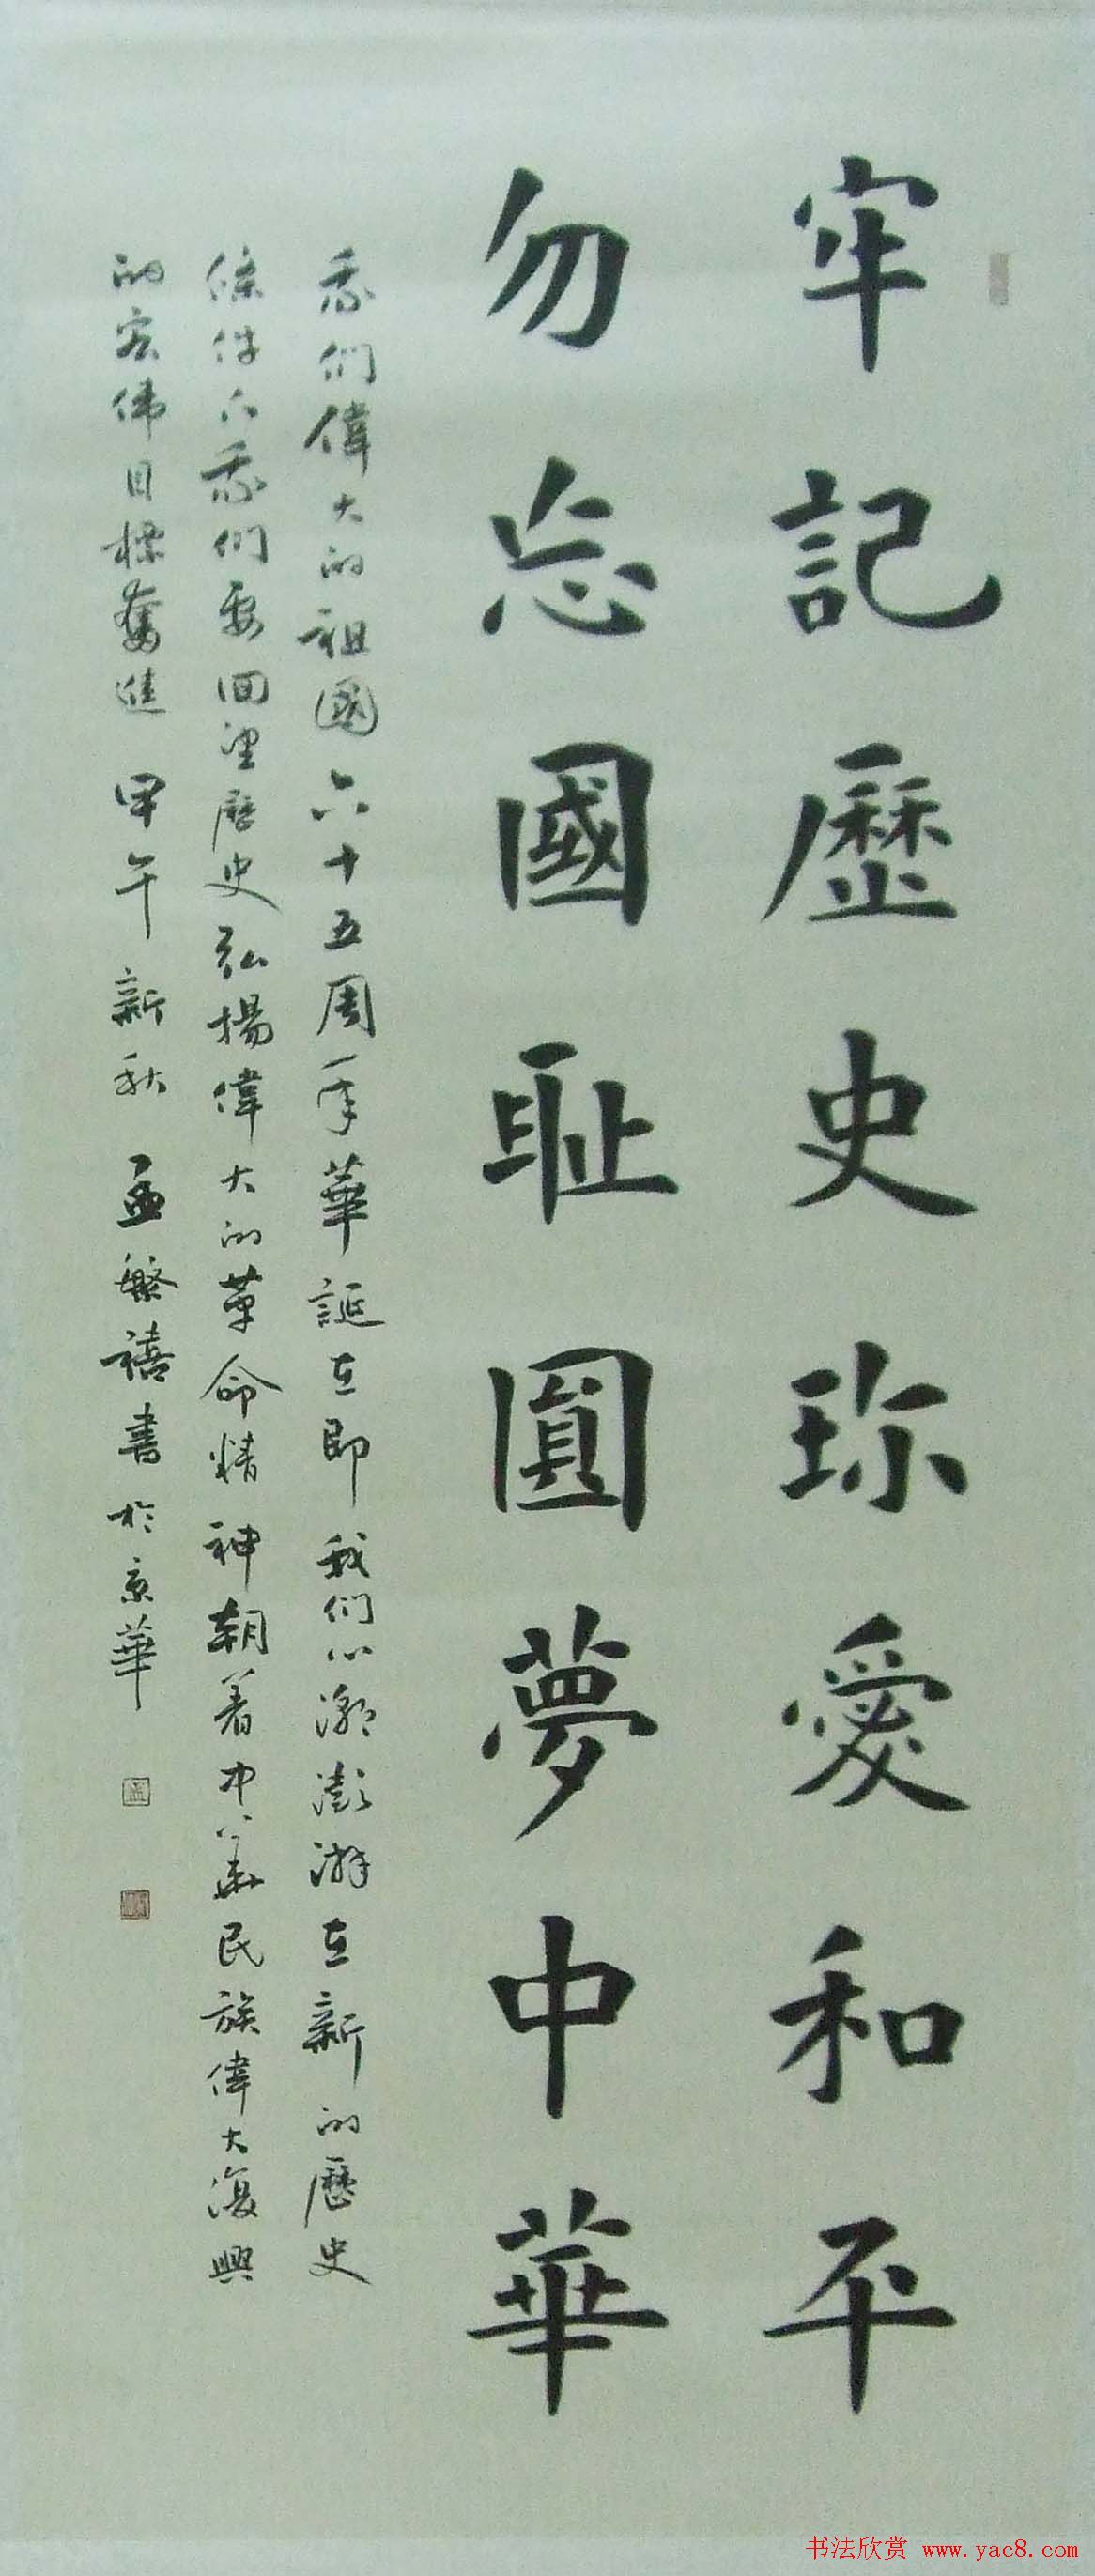 牢記歷史珎愛和平
勿忘國恥圓夢中華
我們偉大的祖國六十五周年華誕在即我们心潮澎湃在新的歷史
條件下我们要回望歷史弘揚偉大的革命精神朝着中華民族偉大復興
的宏伟目標奮進 甲午新秋 孟繁禧書於京華
书法欣赏 www.yac8.com